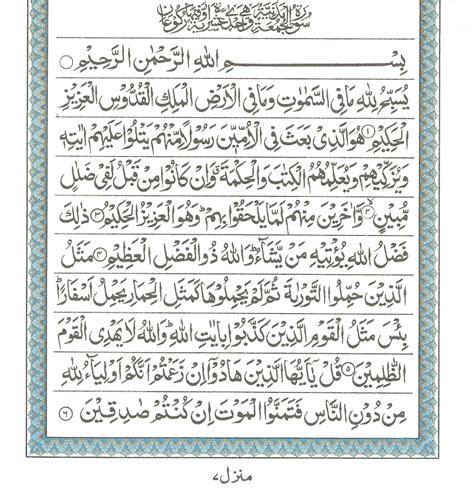 سُوْرَةُ الْجُمُعَةِ مَدَنِيَّةٌ وَّهِيَ اِحْدٰى عَشْرَةَ اٰيَةً وَّفِيْهَا رُكُوْعَانِ
بِسْمِ اللهِ الرَّحْمٰنِ الرَّحِيْمِ
يُسَبِّحُ لِلّٰهِ مَا فِى السَّمٰوٰتِ وَمَا فِى الْاَرْضِ الْمَلِكِ الْقُدُّوْسِ الْعَزِيْزِ
الْحَكِيْمِ ۝۱ هُوَ الَّذِىْ بَعَثَ فِى الْاُمِّيّٖنَ رَسُوْلًا مِّنْهُمْ يَتْلُوْا عَلَيْهِمْ اٰيٰتِهٖ
وَيُزَكِّيْهِمْ وَيُعَلِّمُهُمُ الْكِتٰبَ وَالْحِكْمَةَ ۗ وَاِنْ كَانُوْا مِنْ قَبْلُ لَفِىْ ضَلٰلٍ
مُّبِيْنٍ ۝۲ وَّاٰخَرِيْنَ مِنْهُمْ لَمَّا يَلْحَقُوْا بِهِمْ ؕ وَهُوَ الْعَزِيْزُ الْحَكِيْمُ ۝۳ ذٰلِكَ
فَضْلُ اللهِ يُؤْتِيْهِ مَنْ يَّشَآءُ ؕ وَاللهُ ذُو الْفَضْلِ الْعَظِيْمِ ۝۴ مَثَلُ
الَّذِيْنَ حُمِّلُوا التَّوْرٰىةَ ثُمَّ لَمْ يَحْمِلُوْهَا كَمَثَلِ الْحِمَارِ يَحْمِلُ اَسْفَارًا ؕ
بِئْسَ مَثَلُ الْقَوْمِ الَّذِيْنَ كَذَّبُوْا بِاٰيٰتِ اللهِ ؕ وَاللهُ لَا يَهْدِى الْقَوْمَ
الظّٰلِمِيْنَ ۝۵ قُلْ يٰۤاَيُّهَا الَّذِيْنَ هَادُوْۤا اِنْ زَعَمْتُمْ اَنَّكُمْ اَوْلِيَآءُ لِلّٰهِ
مِنْ دُوْنِ النَّاسِ فَتَمَنَّوُا الْمَوْتَ اِنْ كُنْتُمْ صٰدِقِيْنَ ۝۶
منزل ۷